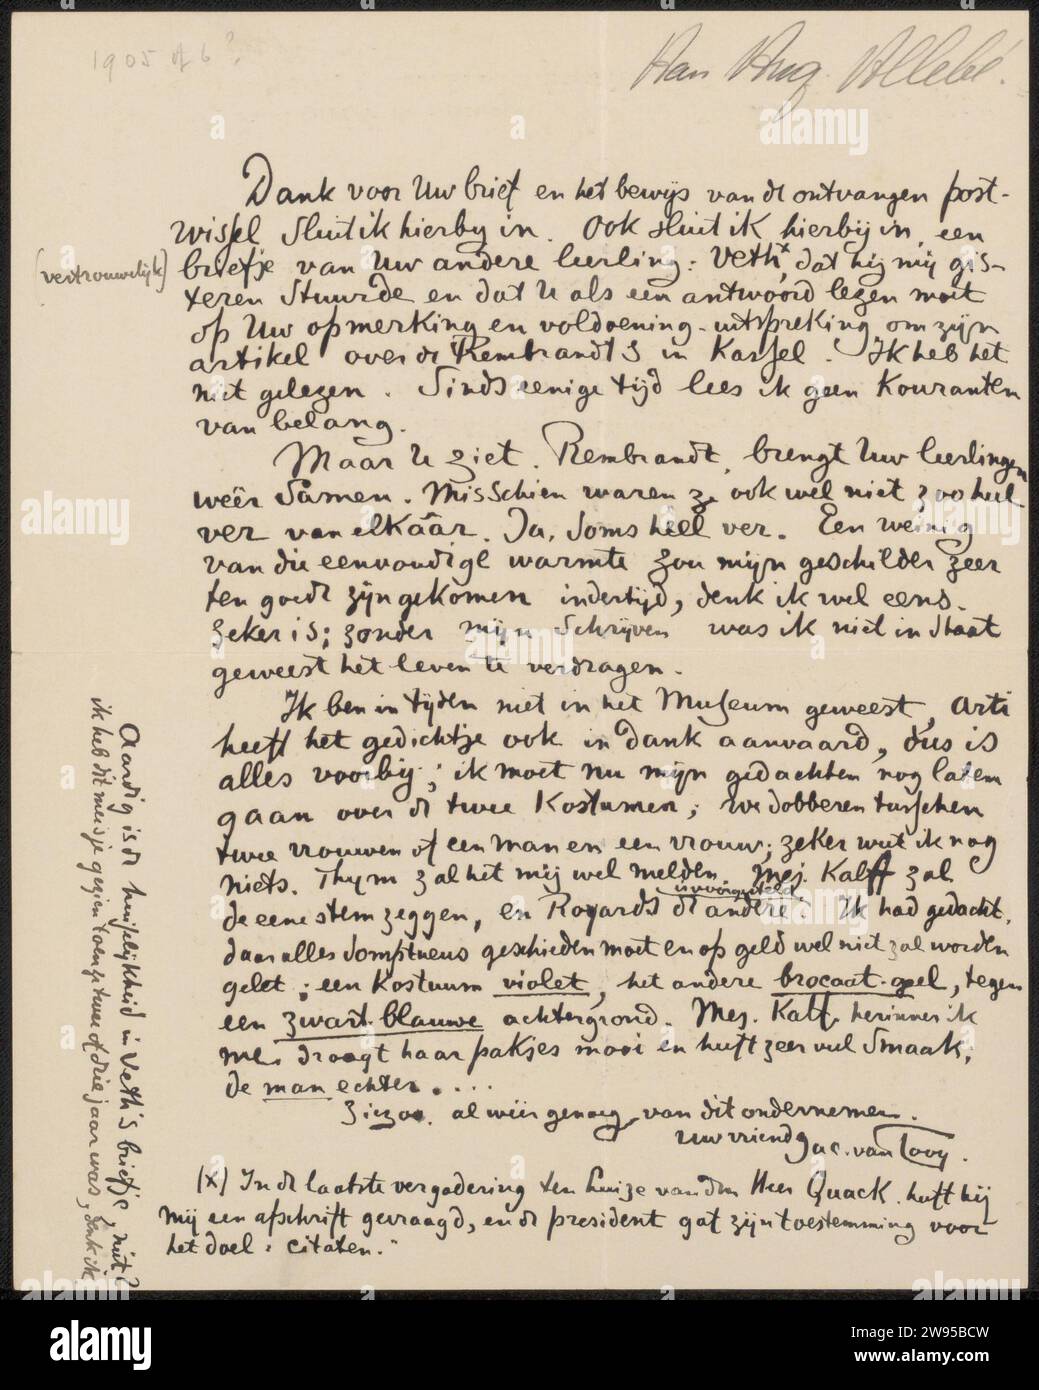 1905 of 6?
Aan Aug. Allebé.
Dank voor Uw brief en het bewijs van de ontvangen post-
wissel sluit ik hierby in. Ook sluit ik hierbij in een
(vertrouwelijk) briefje van Uw andere leerling: Veth x, dat hij mij gis-
teren stuurde en dat U als een antwoord lezen moet
op Uw opmerking en voldoening-uitspreking om zijn
artikel over de Rembrandt's in Kassel. Ik heb het
niet gelezen. Sinds eenige tijd lees ik geen Kouranten
van belang.
Maar U ziet. Rembrandt, brengt Uw leerlingen
weêr sāmen. Misschien waren ze ook wel niet zoo heel
ver van elkâar. Ja, soms heel ver. Een weinig
van die eenvoudige warmte zou mijn geschilder zeer
ten goede zijn gekomen indertijd, denk ik wel eens.
Zeker is; zonder mijn schrijven was ik niet in staat
geweest het leven te verdragen.
Ik ben in tijden niet in het Museum geweest, Arti
heeft het gedichtje ook in dank aanvaard, dus is
alles voorbij; ik moet nu mijn gedachten nog laten
gaan over de twee Kostumen; we dobberen tusschen
twee vrouwen of een man en een vrouw; zeker weet ik nog
niets. Thym zal het mij wel melden. Mej. Kalff zal
de eene stem zeggen, en Royards de andere?
Ik had gedacht,
daar alles somptueus geschieden moet en op geld wel niet zal worden
gelet; een Kostuum violet, het andere brocaat-geel, tegen
een zwart-blauwe achtergrond. Mej. Kalf, herinner ik
me, draagt haar pakjes mooi en heeft zeer veel smaak,
de man echter. . . .
Ziezoo. al weêr genoeg van dit ondernemen.
Uw vriend Jac. van Looy.
(x) In de laatste vergadering ten huize van den Heer Quack heeft hij
mij een afschrift gevraagd, en de president gaf zijn toestemming voor
het doel: citaten."
Aardig is de huiselijkheid in Veth's briefje, niet?
ik heb dit meisje gezien toen ze twee of drie jaar was, denk ik
alamy
Image ID: 2W95BCW
www.alamy.com